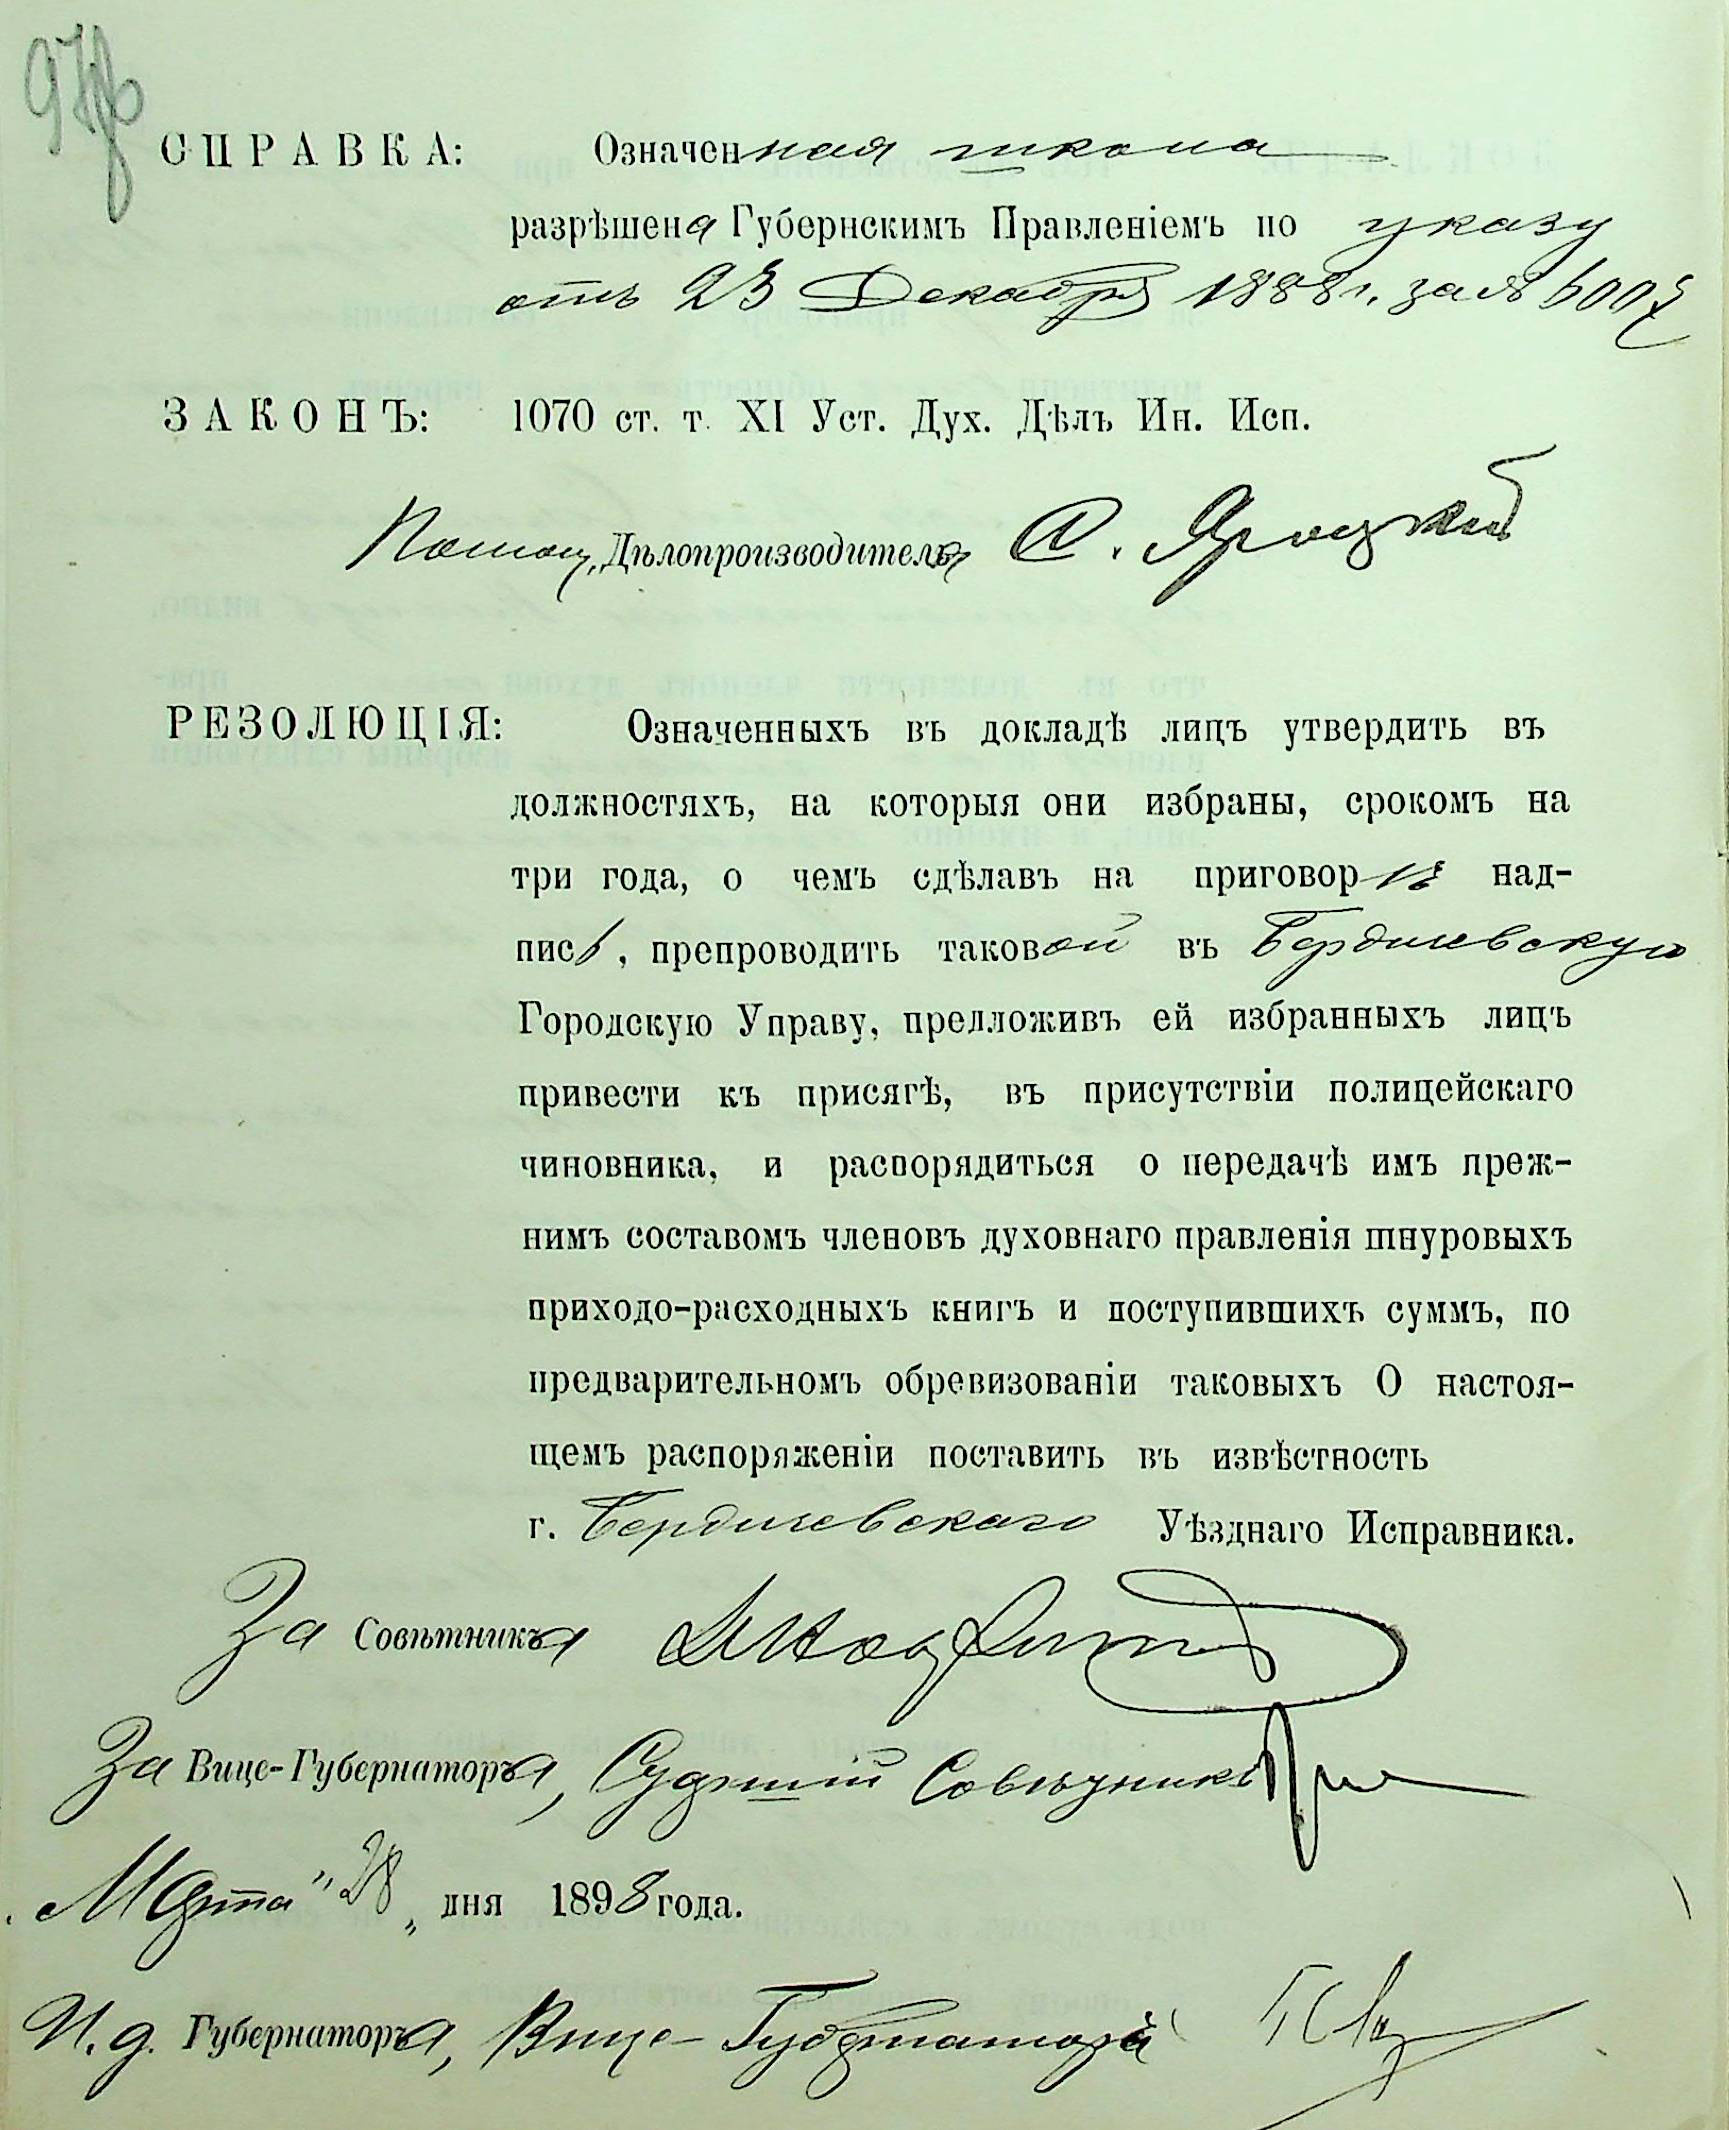 СПРАВКА: Означенная школа
разрѣшена Губернскимъ Правленіемъ по указу
отъ 23 Декабря 1888 г. за №
ЗАКОНЪ: 1070 ст. т. XI Уст. Дух. Дѣлъ Ин. Исп.
Помощ. Дѣлопроизводителя А. Яроцкій
РЕЗОЛЮЦІЯ: Означенныхъ въ докладѣ лицъ утвердить въ
должностяхъ, на которыя они избраны, срокомъ на
три года, о чемъ сдѣлавъ на приговорѣ над-
пись, препроводить таковой въ Бердичевскую
Городскую Управу, предложивъ ей избранныхъ лицъ
привести къ присягѣ, въ присутствіи полицейскаго
чиновника, и распорядиться о передачѣ имъ преж-
нимъ составомъ членовъ духовнаго правленія шнуровыхъ
приходо-расходныхъ книгъ и поступившихъ суммъ, по
предварительномъ обревизованіи таковыхъ О настоя-
щемъ распоряженіи поставить въ извѣстность
г. Бердичевскаго Уѣзднаго Исправника.
За Совѣтника
За Вице-Губернатора, Совѣтникъ
Марта "28" дня 1898 года.
И. д. Губернатора, Вице-Губернаторъ